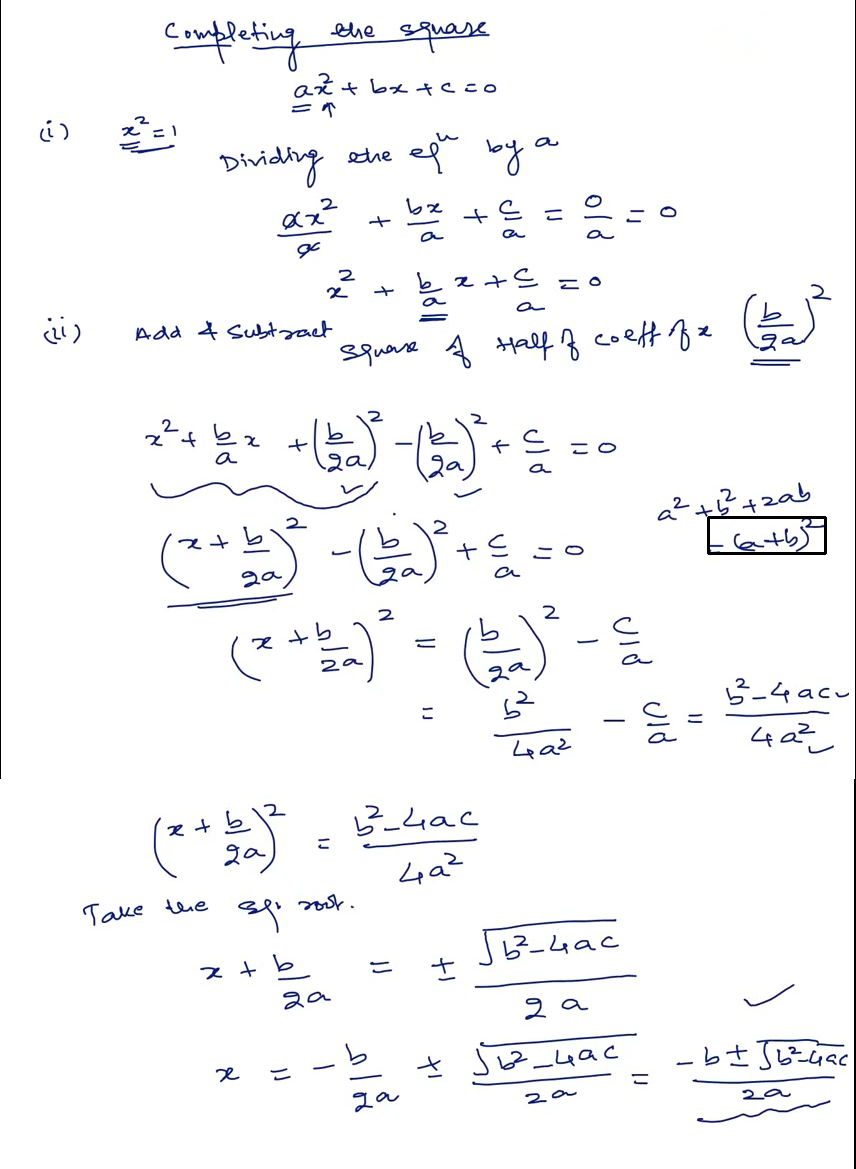 Completing the square
ax² + bx + c = 0
(i) x² = 1
Dividing the eqⁿ by a
ax²/a + bx/a + c/a = 0/a = 0
x² + b/a x + c/a = 0
(ii) Add & Subtract square of Half of coeff of x (b/2a)²
x² + b/a x + (b/2a)² - (b/2a)² + c/a = 0
a² + b² + 2ab
= (a+b)²
(x + b/2a)² - (b/2a)² + c/a = 0
(x + b/2a)² = (b/2a)² - c/a
= b²/4a² - c/a = b² - 4ac/4a²
(x + b/2a)² = b² - 4ac/4a²
Take the sq. root.
x + b/2a = ± √b² - 4ac/2a
x = - b/2a ± √b² - 4ac/2a = -b ± √b² - 4ac/2a